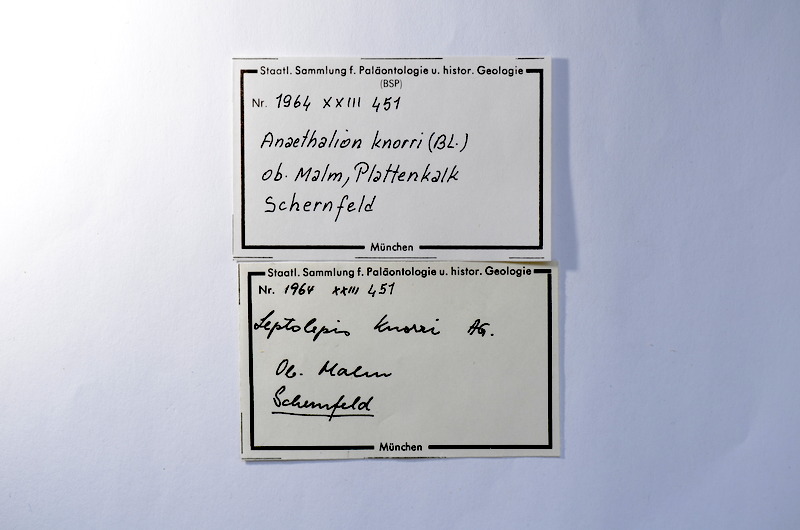 Staatl. Sammlung f. Paläontologie u. histor. Geologie
(BSP)
Nr. 1964 XXIII 451
Anaethalion knorri (BL.)
ob. Malm, Plattenkalk
Schernfeld
München
Staatl. Sammlung f. Paläontologie u. histor. Geologie
Nr. 1964 XXIII 451
Leptolepis knorri AG.
Ob. Malm
Schernfeld
München